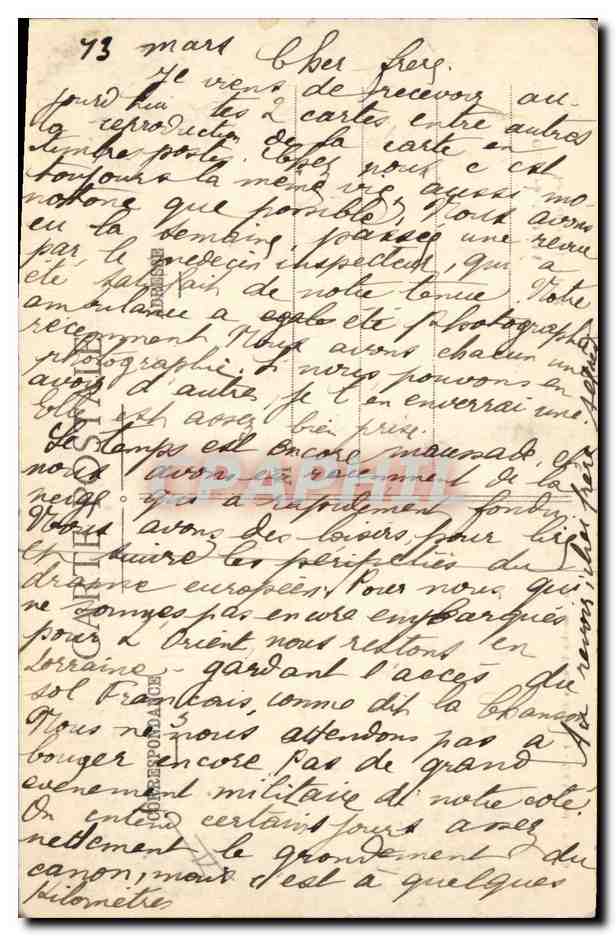 13 mars Cher frère.
Je viens de recevoir au-
jourd'hui tes 2 cartes entre autres
la reproduction de la carte en
timbres poste. Chez nous c'est
toujours la même vie aussi mo-
notone que possible. Nous avons
eu la semaine passée une revue
par le medecin inspecteur, qui a
été satisfait de notre tenue. Notre
ambulance a été photographiée
recemment. Nous avons chacun une
photographie. Si nous pouvons en
avoir d'autres, je t'en enverrai une.
Elle est assez bien prise.
Le temps est encore maussade, et
nous avons eu recemment de la
neige qui a rapidement fondu.
Nous avons des loisirs pour lire
et suivre les péripéties du
drame européen. Pour nous, qui
ne sommes pas encore embarqués
pour l'Orient, nous restons en
Lorraine - gardant l'accès du
sol Français, comme dit la Chanson
Nous ne nous attendons pas à
bouger encore. Pas de grand
evenement militaire de notre coté.
On entend certains jours assez
nettement le grondement du
canon, mais c'est à quelques
kilomètres
Au revoir, cher frère
CARTE POSTALE
CORRESPONDANCE
ADRESSE
CPAPHIL